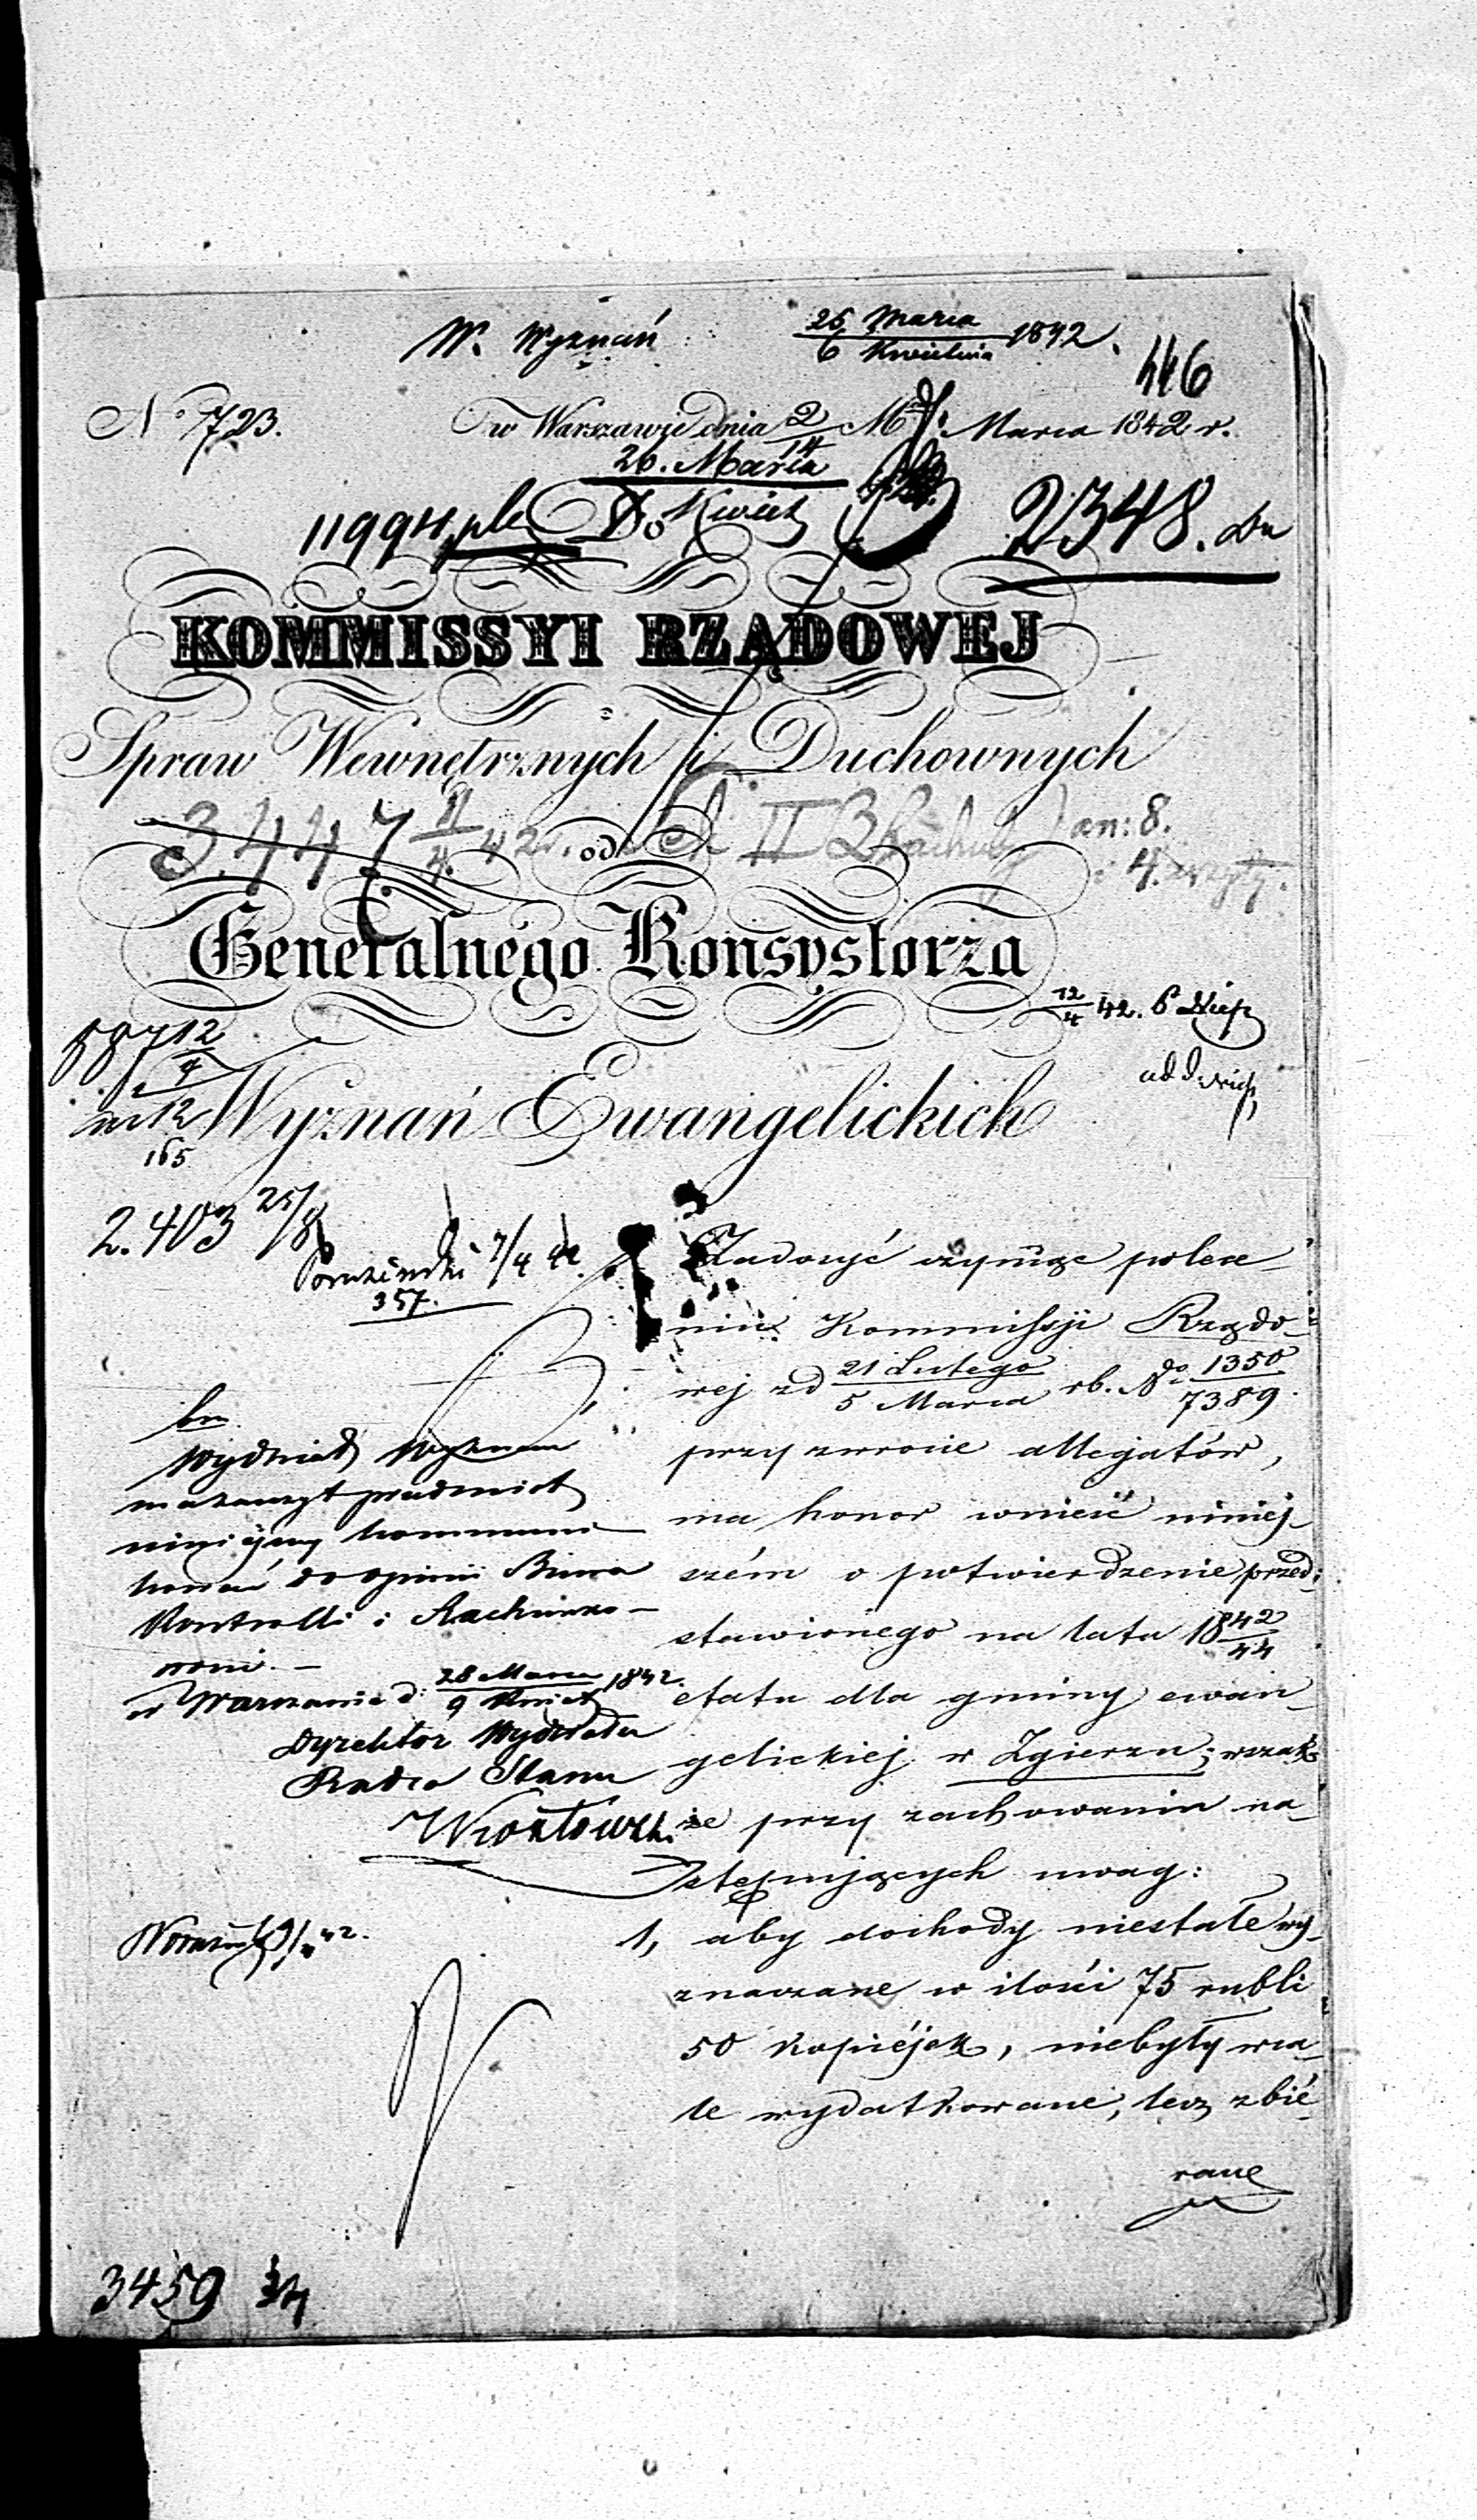 W. Wyznań
25 Marca / 6 Kwietnia 1842.
446
No 723.
w Warszawie dnia 2/14 Marca 1842 r.
20. Marca
Kwiet
11994
Do
2348.
KOMMISSYI RZĄDOWEJ
Spraw Wewnętrznych i Duchownych
3.447 11/4 42. od II an: 8.
4.
Generalnego Konsystorza
12/4 42.
587 12/4
Wyznań Ewangelickich
165
2.403 25/8
7/4 42.
357.
Zadosyć czyniąc polece-
niu Kommissyi Rządo-
wej zd 21 Lutego / 5 Marca rb. No 1350/7389.
przy zwrocie allegatów,
ma honor wnieść niniej-
szém o potwierdzenie przed-
stawionego na lata 1842/44
etatu dla gminy ewan-
gelickiej w Zgierzu; wszak-
że przy zachowaniu na-
stępujących uwag:
1, aby dochody niestałe wy-
znaczane w ilości 75 rubli
50 kopiéjek, niebyły wca-
le wydatkowane, lecz zbié-
rane
Wydział Wyznań
zakommuni-
kować do opinii Biura
Kontrolli i Rachunko-
wości. –
w Warszawie d: 28 Marca / 9 Kwiet 1842.
Dyrektor Wydziału
Radca Stanu
3459